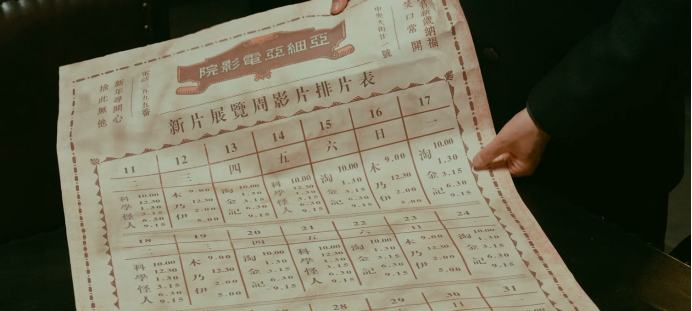 亞細亞電影院
新歲納福
笑口常開
中央大街廿一號
新年尋開心
捨此無他
新片展覽周影片排片表
11 12 13 14 15 16 17
二 三 四 五 六 日 一
科學怪人 10.00 12.30 1.30 3.15 6.30 9.15
木乃伊 9.00 12.30 2.00 5.00
淘金記 10.00 1.30 3.15 6.30 9.15
科學怪人 10.00 12.30 1.30 3.15 6.30 9.15
淘金記 10.00 1.30 3.15 6.30 9.15
木乃伊 9.00 12.30 2.00 5.00
淘金記 10.00 1.30 3.15 6.30 9.15
18 19 20 21 22 23 24
四 五 六
科學怪人 10.00 12.30 1.30 3.15 6.30 9.15
木乃伊 9.00 12.30 2.00 5.00
淘金記 10.00 1.30 3.15 6.30 9.15
科學怪人 10.00 12.30 1.30 3.15 6.30 9.15
淘金記 10.00 1.30 3.15 6.30 9.15
木乃伊 9.00 12.30 2.00 5.00
淘金記 10.00 1.30 3.15 6.30 9.15
28 29 30 31